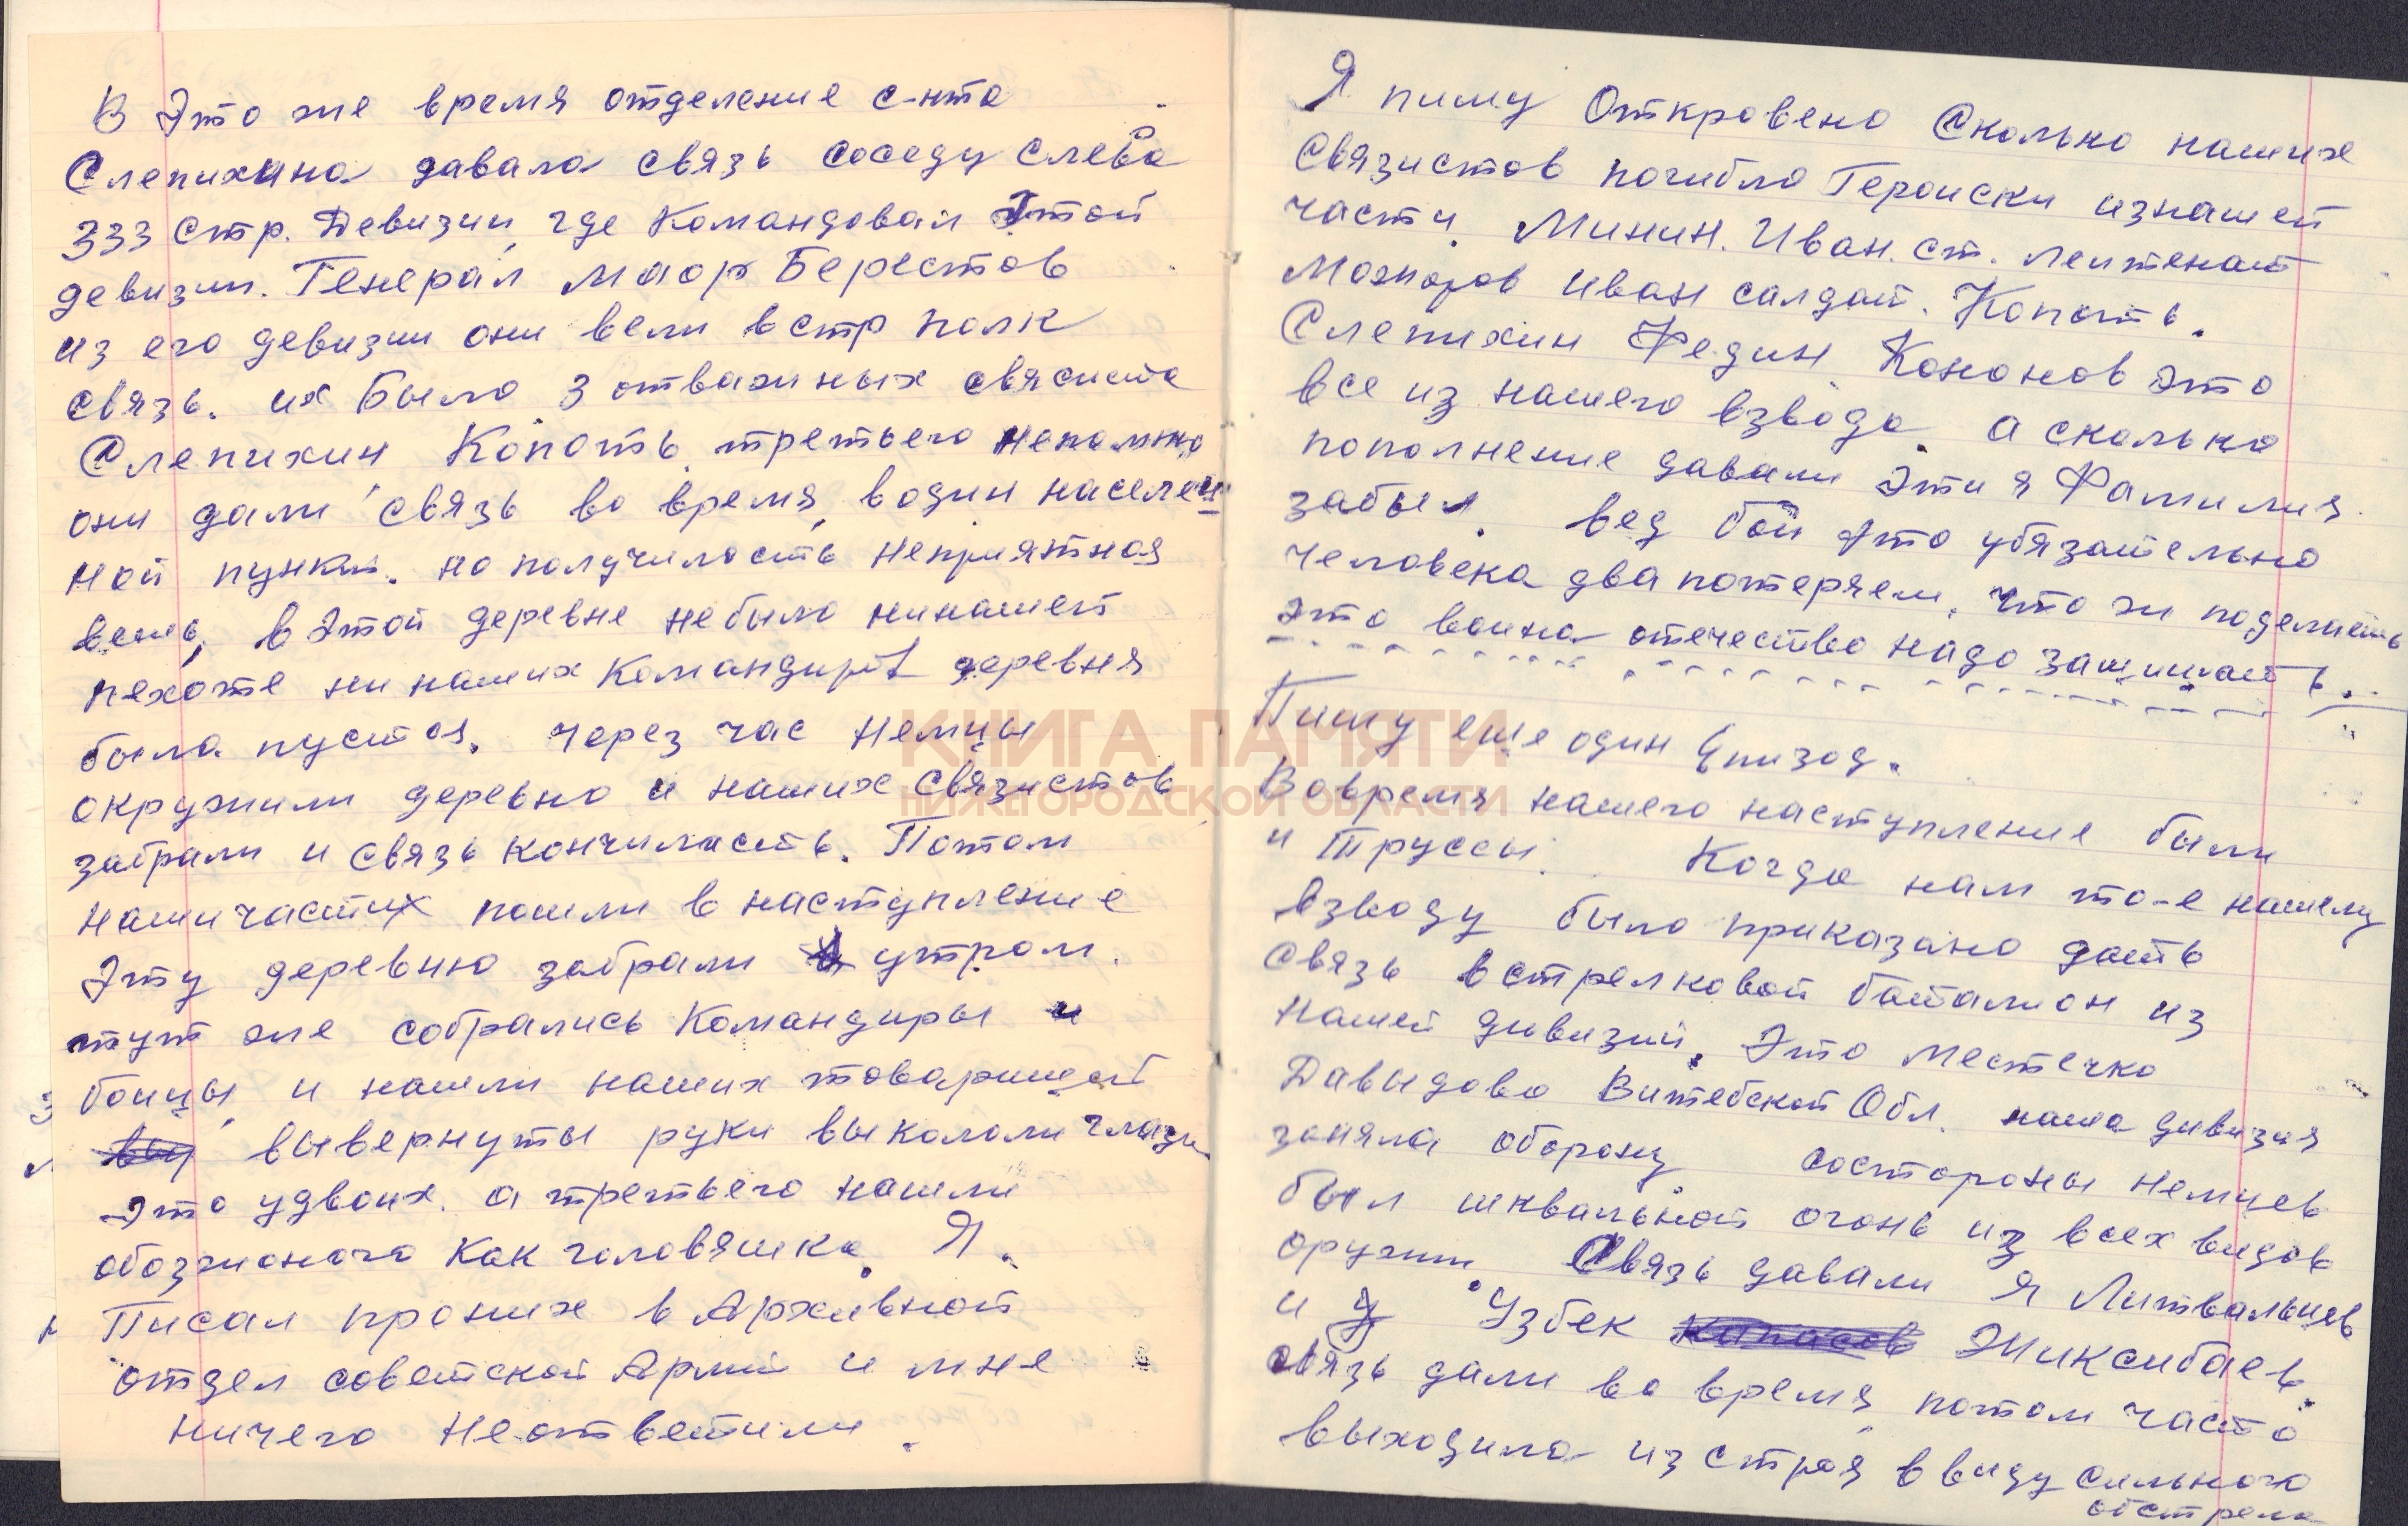 В Это же время отделение с-нта
Слепихина давала связь соседу слева
333 стр. Девизии, где Командовал Этой
девизии. Генерал маор Берестов
из его девизии они вели в стр полк
связь. их Было 3 отважных свясиста
Слепихин Копоть, третьего непомню
они дали связь во время, водин населен
ной пункт. но получилость неприятная
вещь, в Этой деревне небыло нинашей
пехоте ни наших Командиров деревня
была пустая. через час немцы
окружили деревню и наших связистов
забрали и связь кончиласть. Потом
наши части пошли в наступление
Эту деревню забрали утром.
тут же собрались Командиры и
бойцы, и нашли наших товарищей
вывернуты руки выкололи глаза
Это удвоих. а третьего нашли
обозжоного Как головяшка. Я.
Писал прониих в Архивной
отдел советской Армии и мне
ничего неответили.
Я пишу Откровено Сколько наших
Связистов погибло Героиски изнашей
части. Минин. Иван. ст. лейтенант
Иван салдат. Копоть.
Слепихин Федин, Кононов Это
все из нашего взвода. а сколько
пополнение давали Эти я Фамилия
забыл. вед бой Это убязательно
человека два потеряем. что ж поделаешь
это война отечество надо защищать.
Пишу еще один Епизод.
Вовремя нашего наступление были
и Труссы. Когда нам то-е нашему
взводу было приказано дать
связь встрелковой баталион из
нашей дивизии. Это местечко
Давыдово Витебской Обл. наша дивизия
заняла оборону состороны немцев
был шквальной огонь из всех видов
оружии. Связь давали я Литвальцев
и Узбек Жиксибаев.
связь дали во время, потом часто
выходила из строя, ввиду сильного
обстрела
КНИГА ПАМЯТИ
НИЖЕГОРОДСКОЙ ОБЛАСТИ